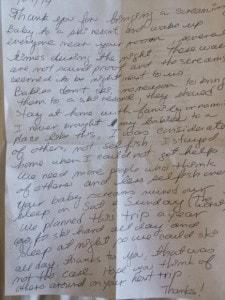 /14
Thank you for bringing a screaming
baby to a ski resort and wake up
everyone near your room several
times during the night. These walls
are not sound proof and the screams
seemed to be right next to us
Babies don't ski, snowmobile, to bring
them to a ski resort, they should
stay at home with family or nanny
I never brought my babies to a
like this, I was considerate
of others, not selfish, I stayed
home when I could not get help
We need more people who think
of others and less selfish ones
Your baby screams ruined our
sleep on Sat & Sunday
We planned this trip a year
ago to ski hard all day and
sleep at night so we could ski
all day, thanks to you, that was
not the case. Hope you think of
others around on your next trip
Thanks!